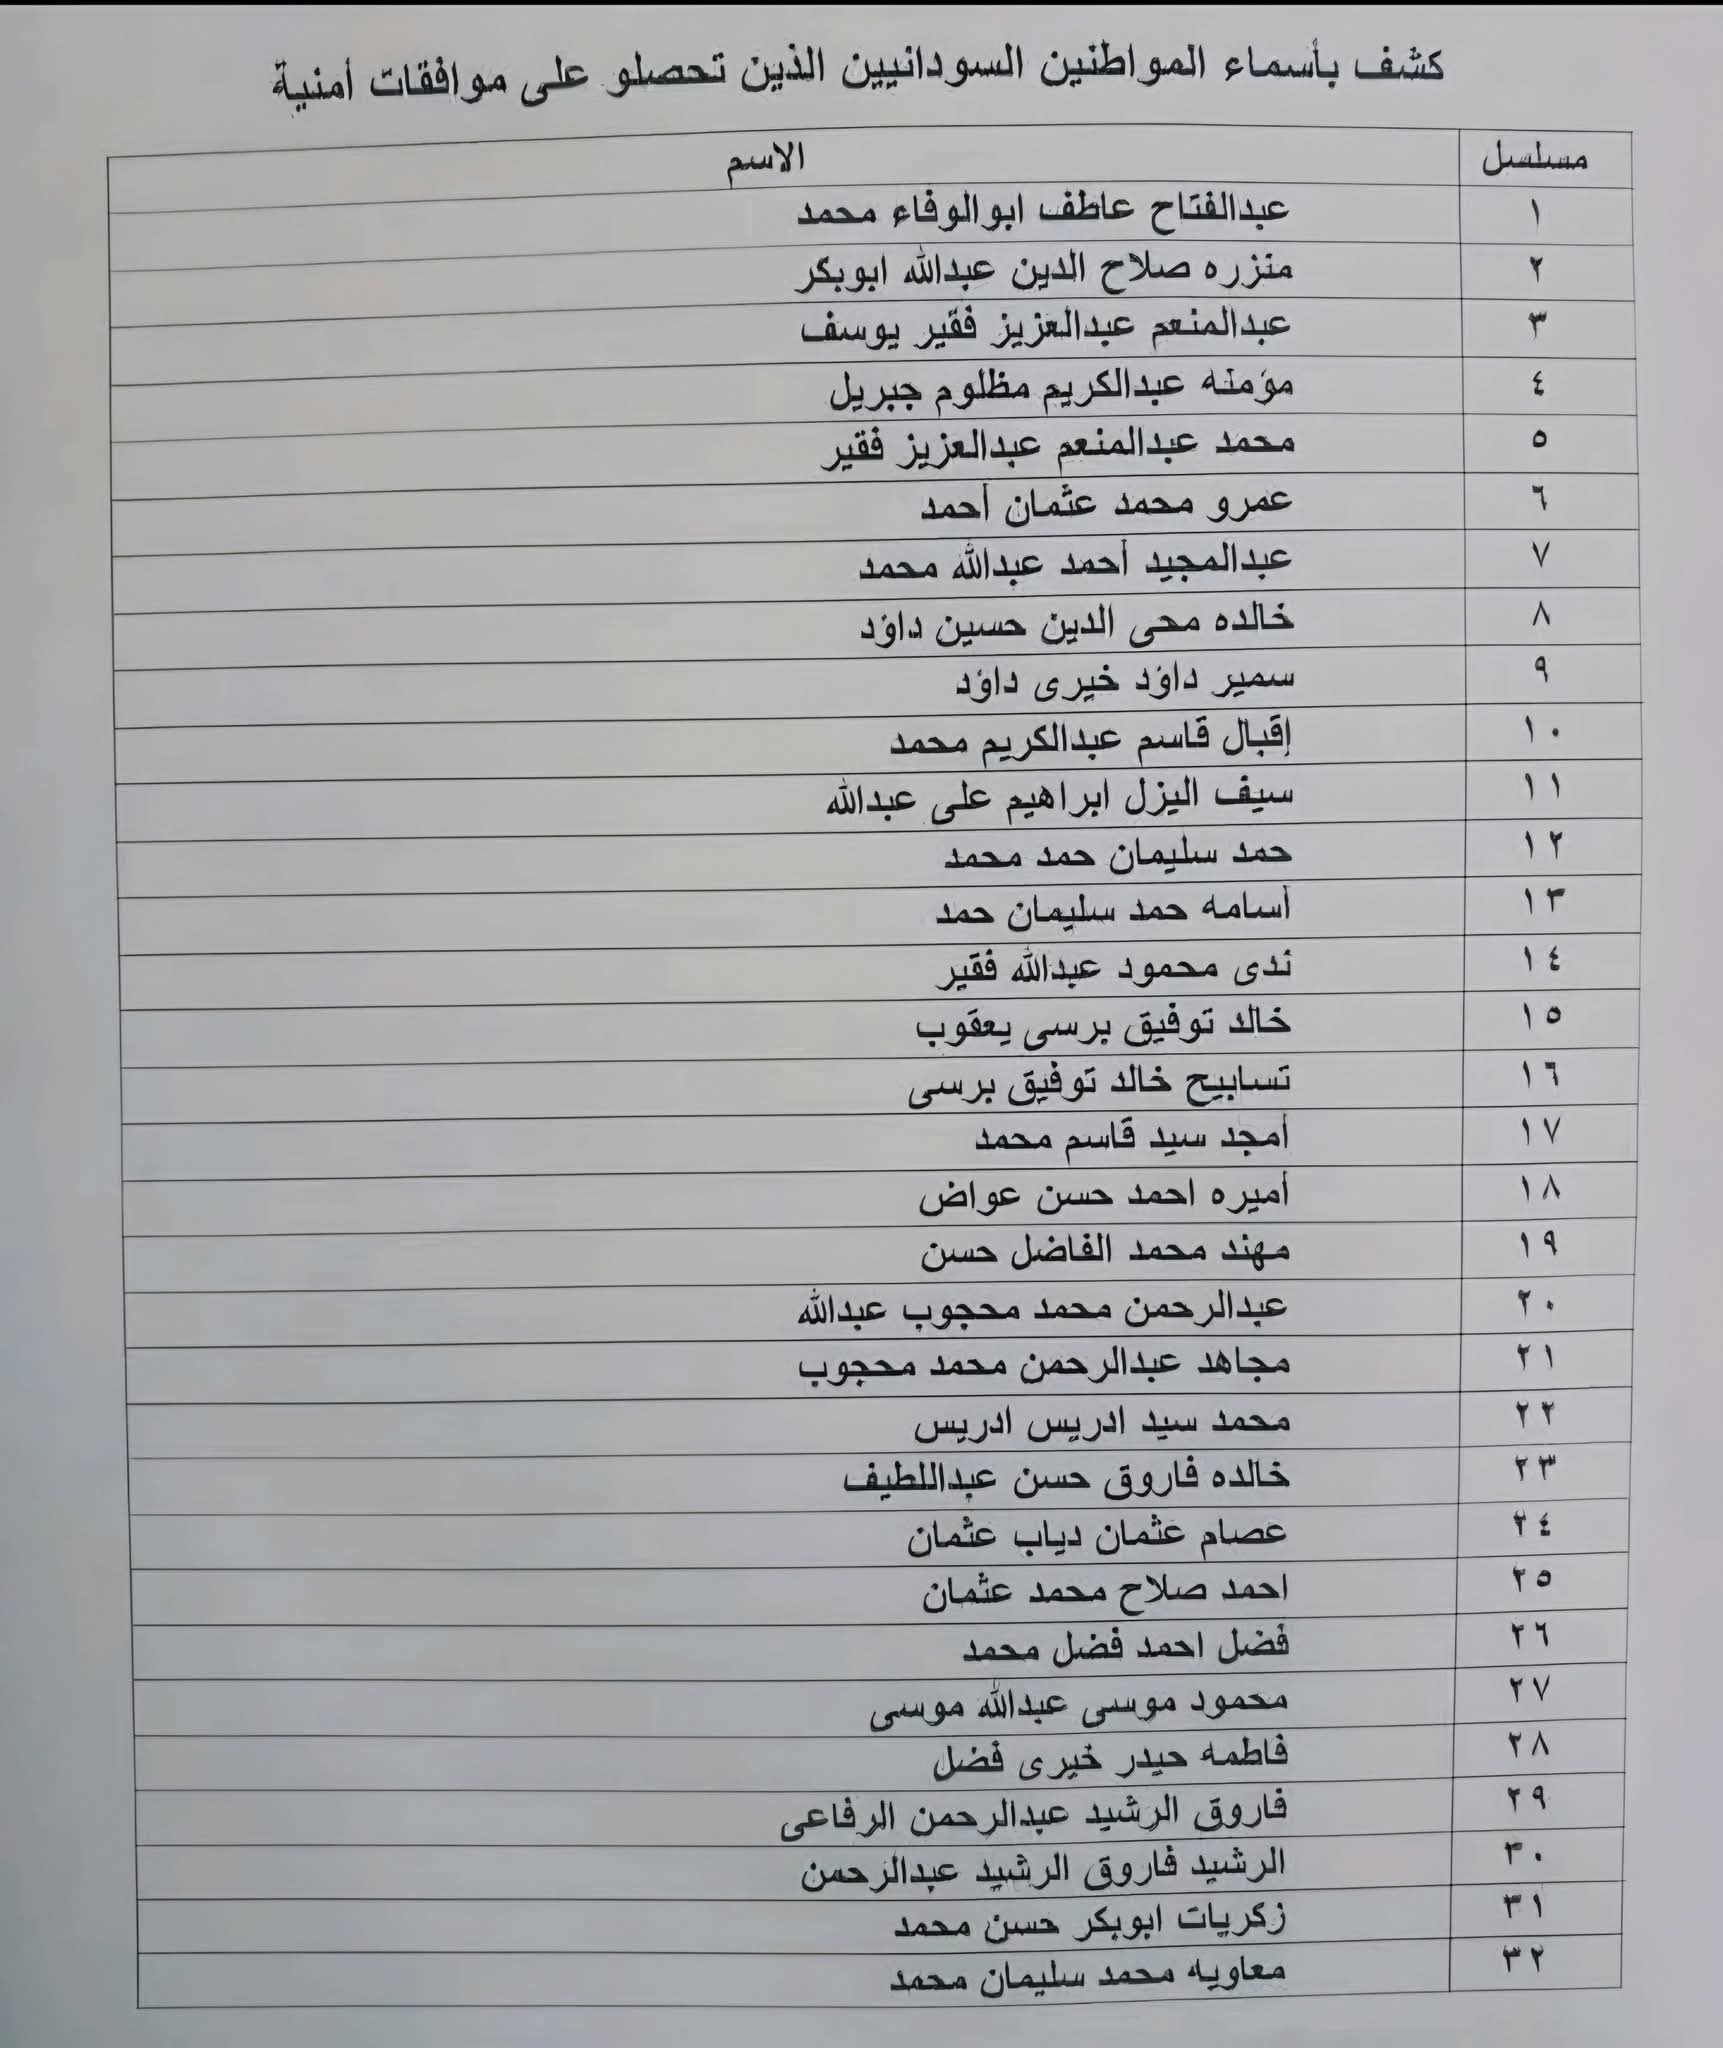 كشف بأسماء المواطنين السودانيين الذين تحصلو على موافقات أمنية
مسلسل الاسم
١ عبدالفتاح عاطف ابوالوفاء محمد
٢ منزره صلاح الدين عبدالله ابوبكر
٣ عبدالمنعم عبدالعزيز فقير يوسف
٤ مؤمنه عبدالكريم مظلوم جبريل
٥ محمد عبدالمنعم عبدالعزيز فقير
٦ عمرو محمد عثمان أحمد
٧ عبدالمجيد أحمد عبدالله محمد
٨ خالده محى الدين حسين داؤد
٩ سمير داؤد خيرى داؤد
١٠ إقبال قاسم عبدالكريم محمد
١١ سيف اليزل ابراهيم على عبدالله
١٢ حمد سليمان حمد محمد
١٣ أسامه حمد سليمان حمد
١٤ ندى محمود عبدالله فقير
١٥ خالد توفيق برسى يعقوب
١٦ تسابيح خالد توفيق برسى
١٧ أمجد سيد قاسم محمد
١٨ أميره احمد حسن عواض
١٩ مهند محمد الفاضل حسن
٢٠ عبدالرحمن محمد محجوب عبدالله
٢١ مجاهد عبدالرحمن محمد محجوب
٢٢ محمد سيد ادريس ادريس
٢٣ خالده فاروق حسن عبداللطيف
٢٤ عصام عثمان دياب عثمان
٢٥ احمد صلاح محمد عثمان
٢٦ فضل احمد فضل محمد
٢٧ محمود موسى عبدالله موسى
٢٨ فاطمه حيدر خيرى فضل
٢٩ فاروق الرشيد عبدالرحمن الرفاعى
٣٠ الرشيد فاروق الرشيد عبدالرحمن
٣١ زكريات ابوبكر حسن محمد
٣٢ معاويه محمد سليمان محمد